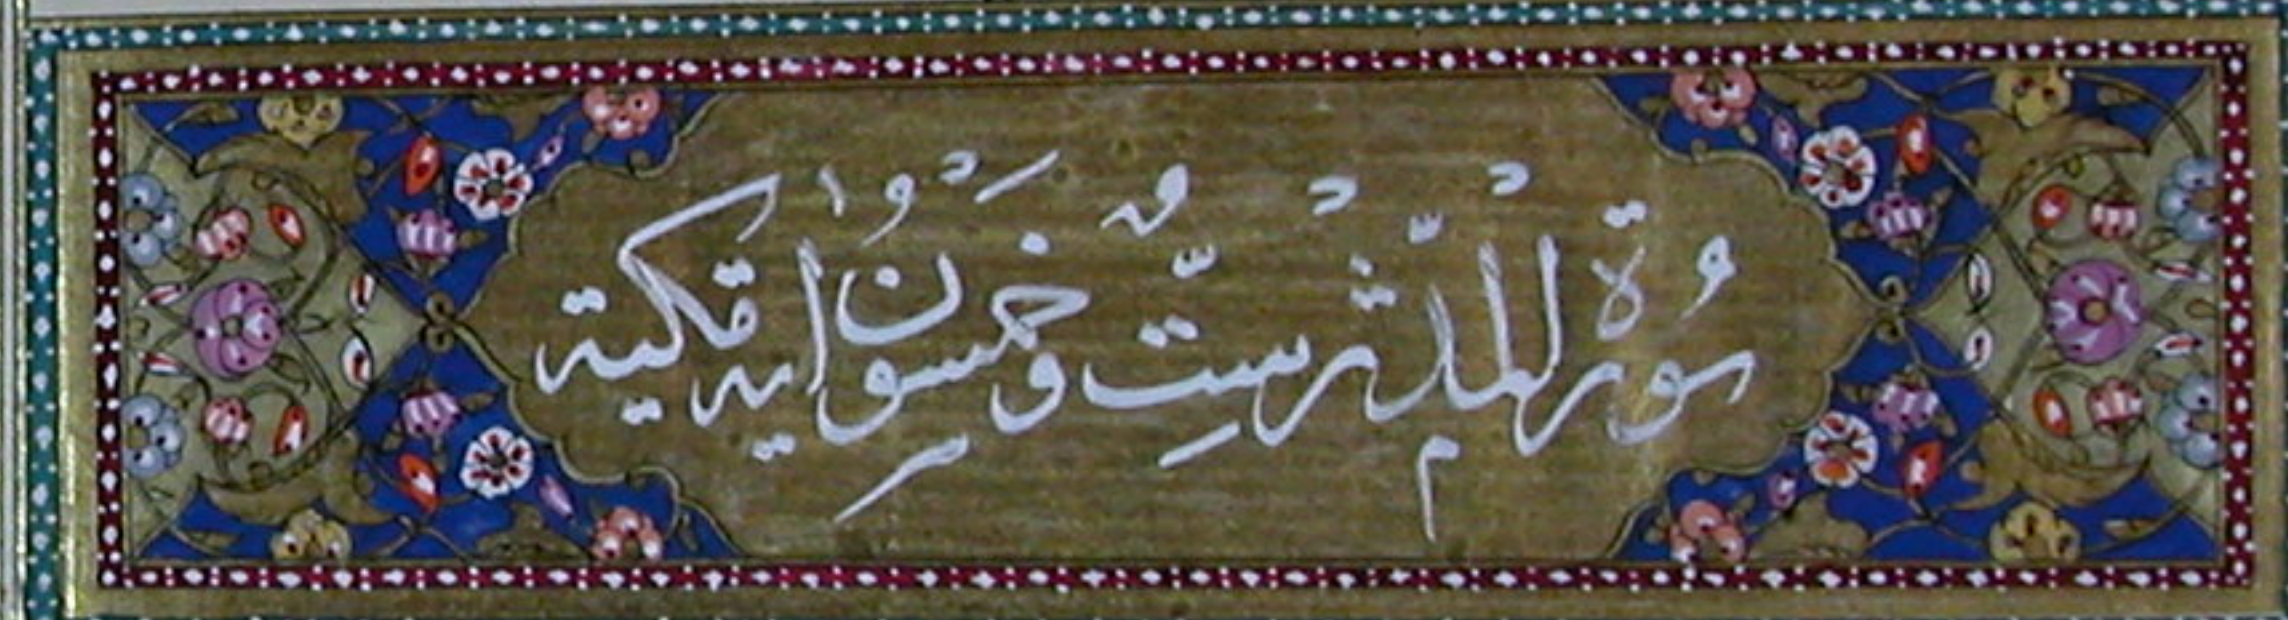 سورة المدّثر ستّ وخمسون اية مكية